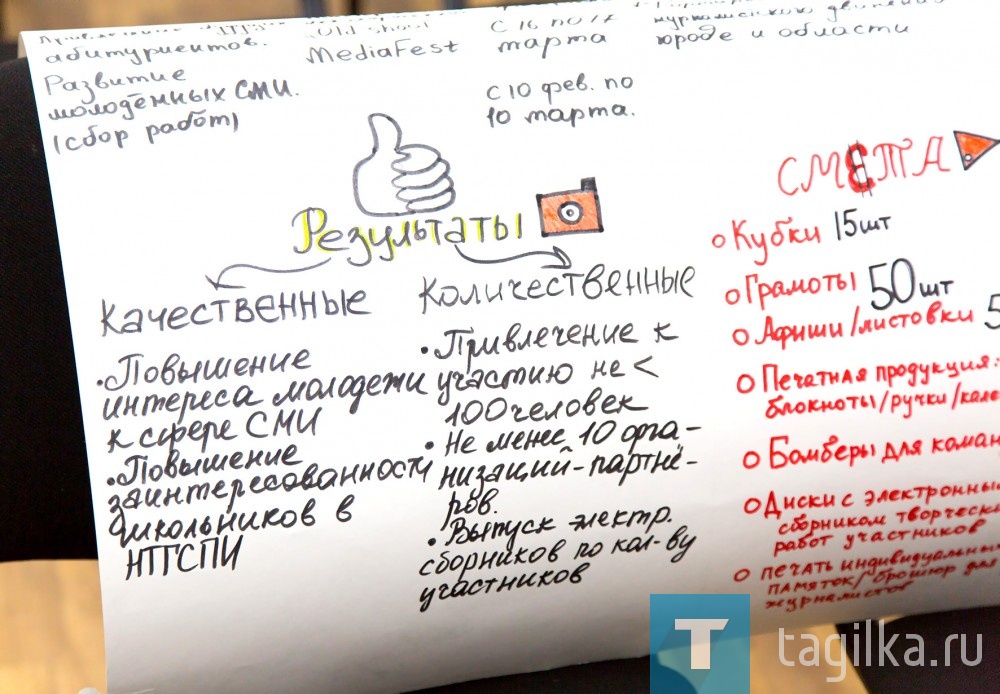 абитуриентов.
Развитие
молодёжных СМИ.
(сбор работ)
Old School
MediaFest
с 16 по 17
марта
с 10 фев. по
10 марта.
городе и области
Результаты
Качественные
• Повышение
интереса молодежи
к сфере СМИ
• Повышение
заинтересованности
школьников в
НТГСПИ
Количественные
• Привлечение к
участию не <
100 человек
• Не менее 10 орга-
низаций-партнё-
ров.
• Выпуск электр.
сборников по кол-ву
участников
СМЕТА
Кубки 15шт
Грамоты 50шт
Афиши/листовки 5
Печатная продукция:
блокноты/ручки/кале
Бомберы для коман
Диски с электронны
сборником творчески
работ участников
печать индивидуальных
памяток/брошюр для
журналистов
T tagilka.ru